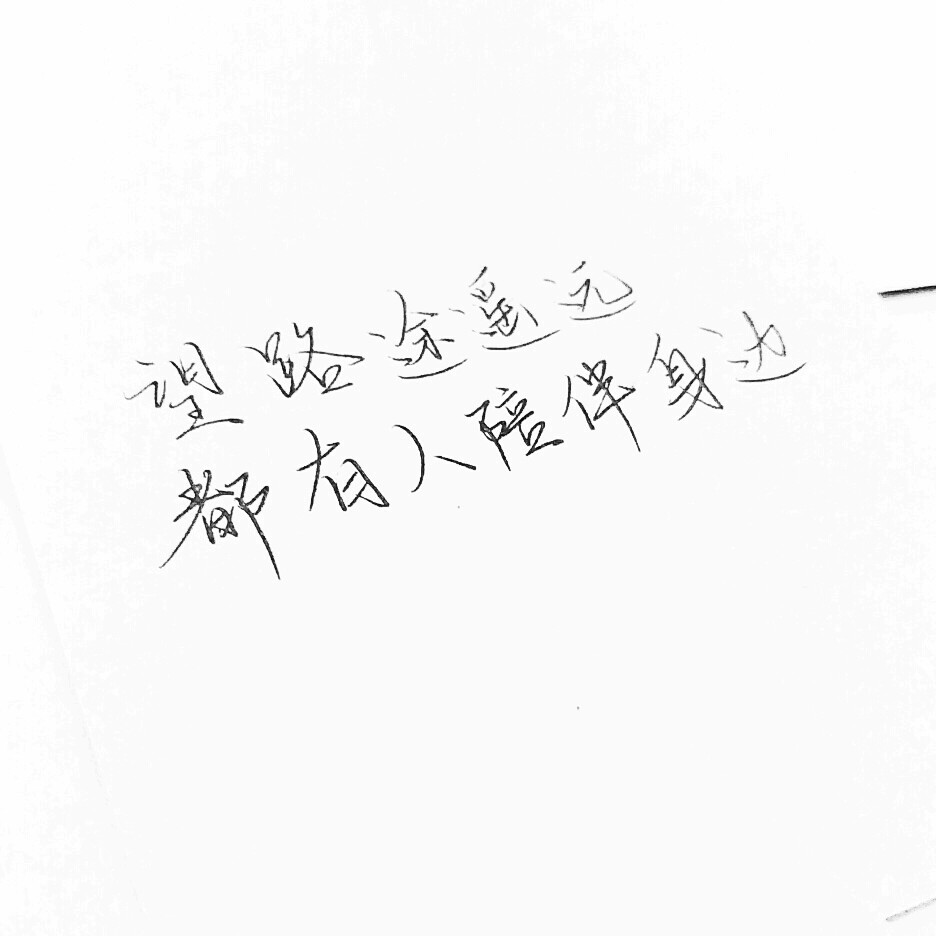 望路途遥远
都有人陪伴身边